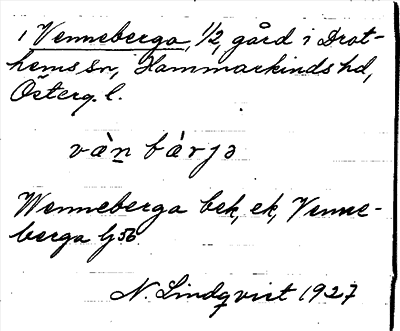 i Venneberga, 1/2, gård i Drot-
hems sn, Hammarkinds hd,
Österg. l.
vàn bàrjə
Wenneberga bek, ek, Venne-
berga Gj 56
N. Lindqvist 1927